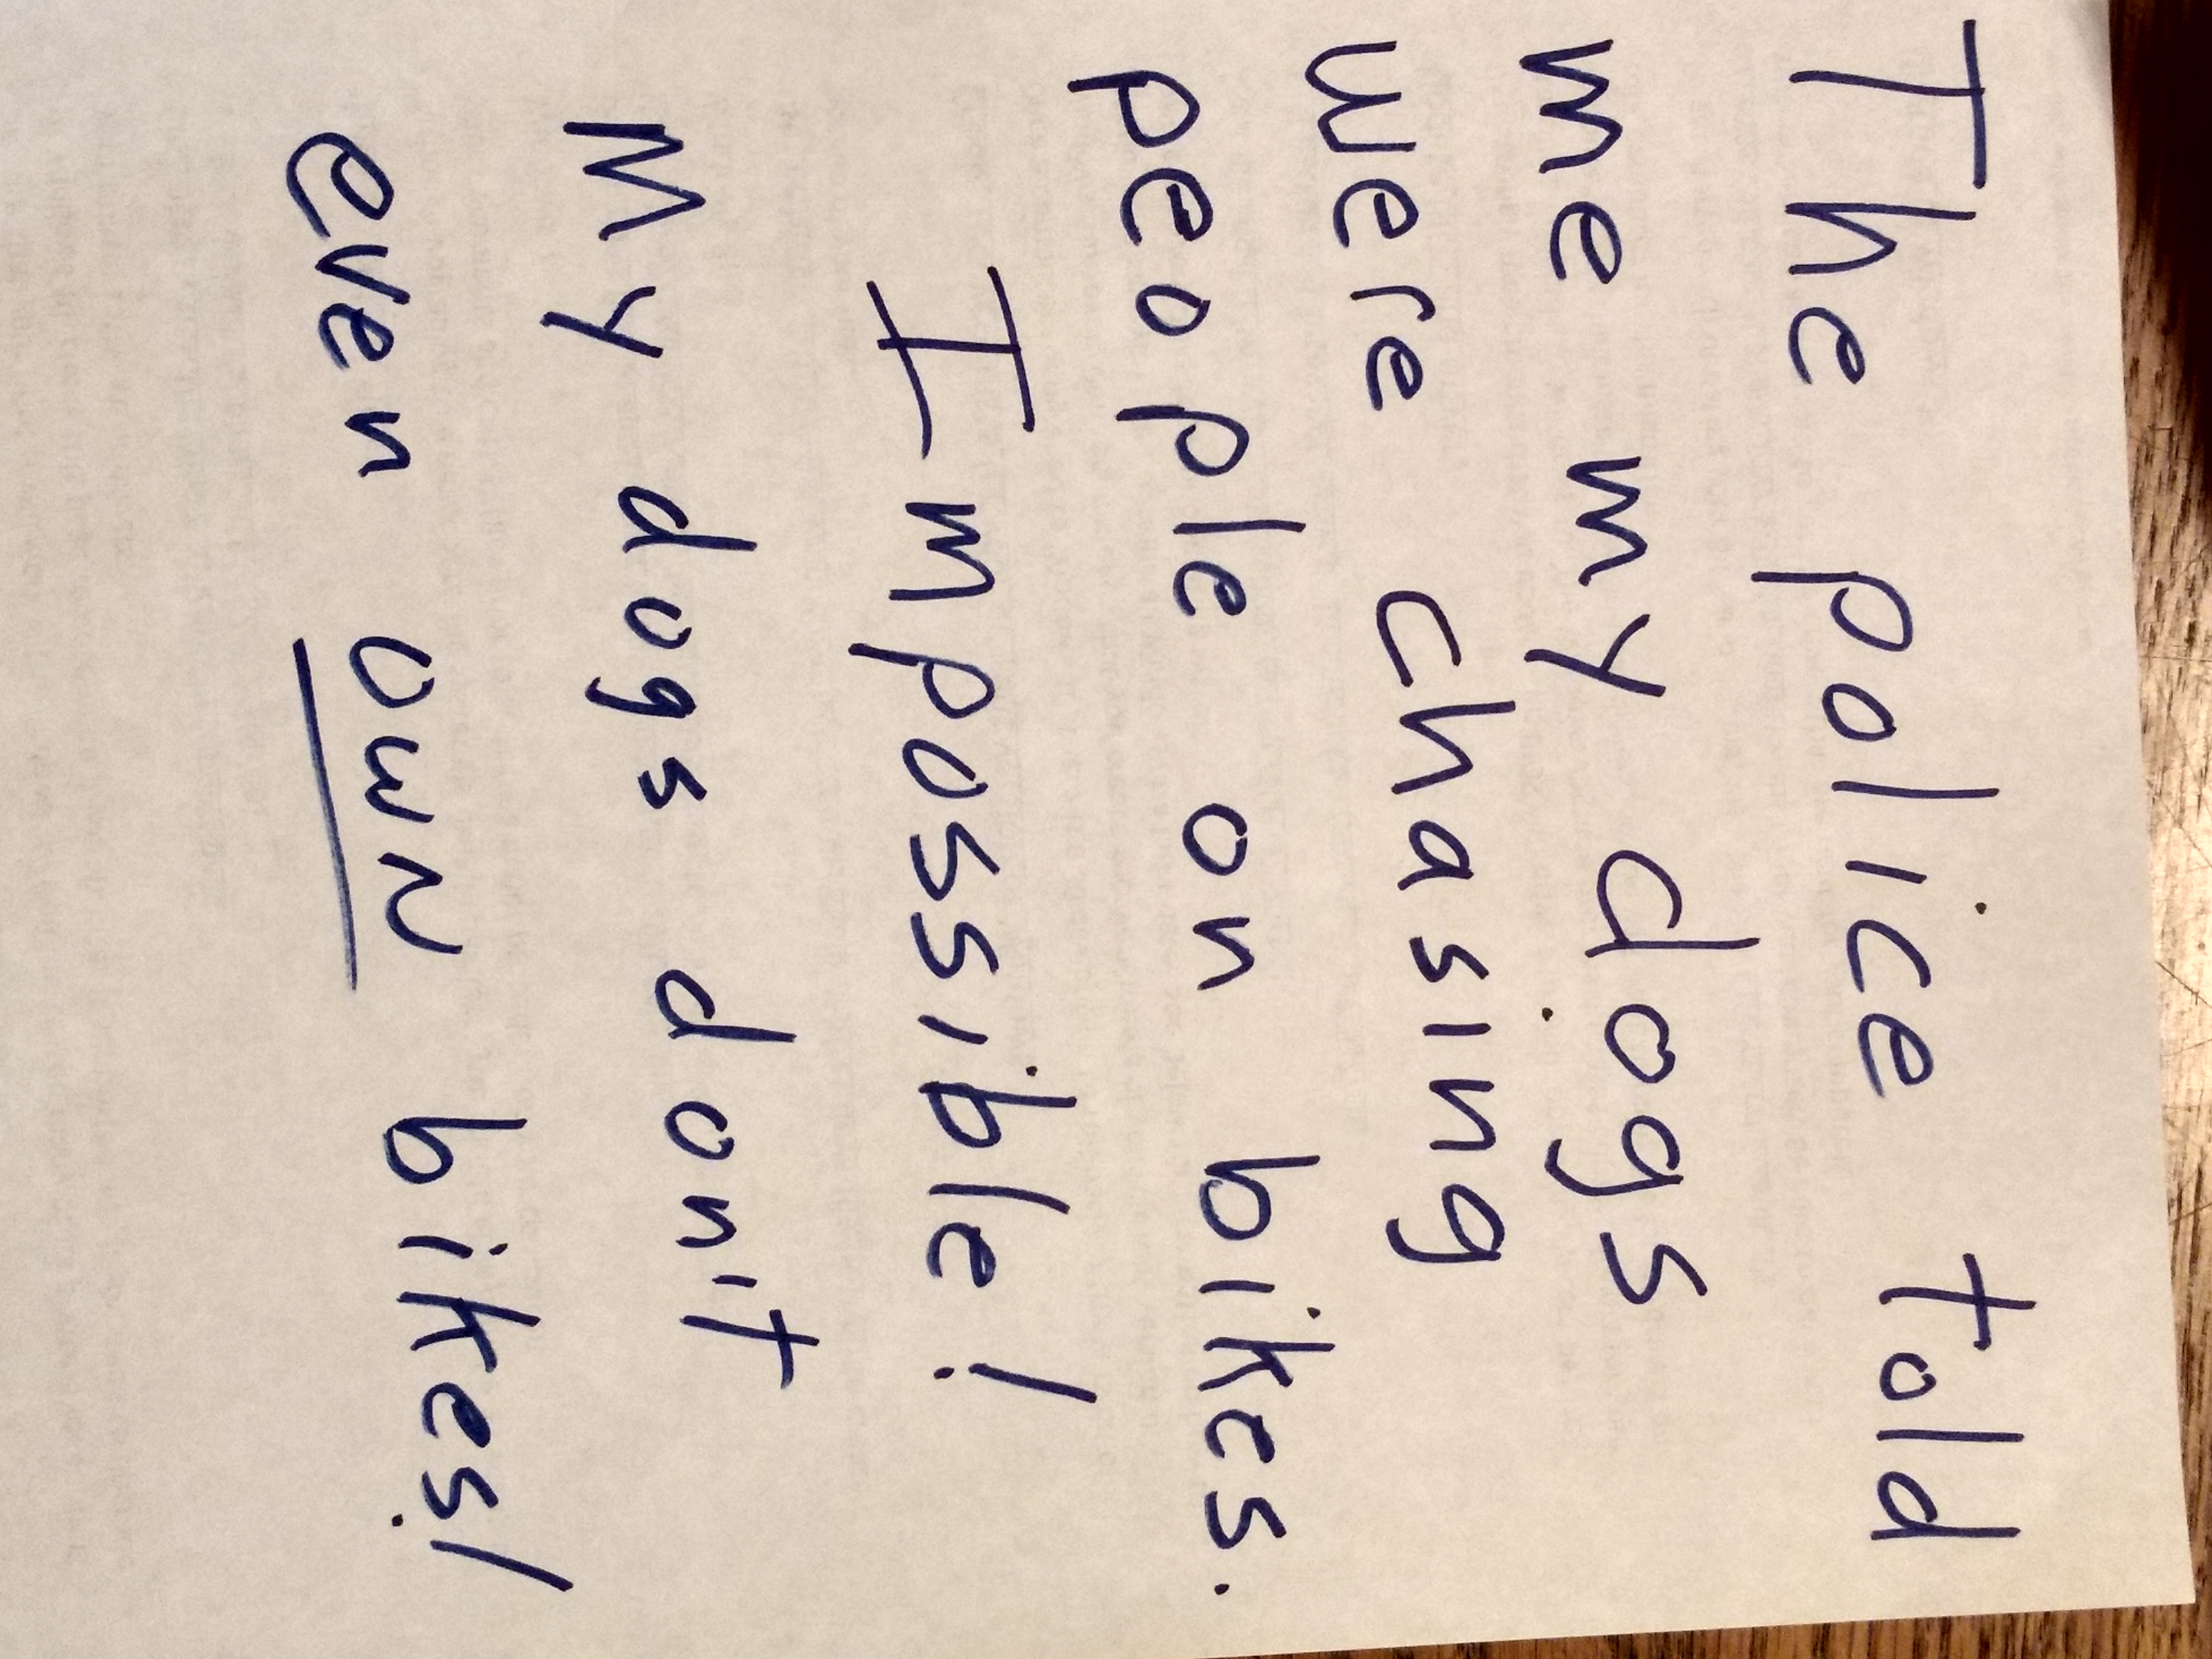 The police told
me my dogs
were chasing
people on bikes.
Impossible!
My dogs don't
even own bikes!